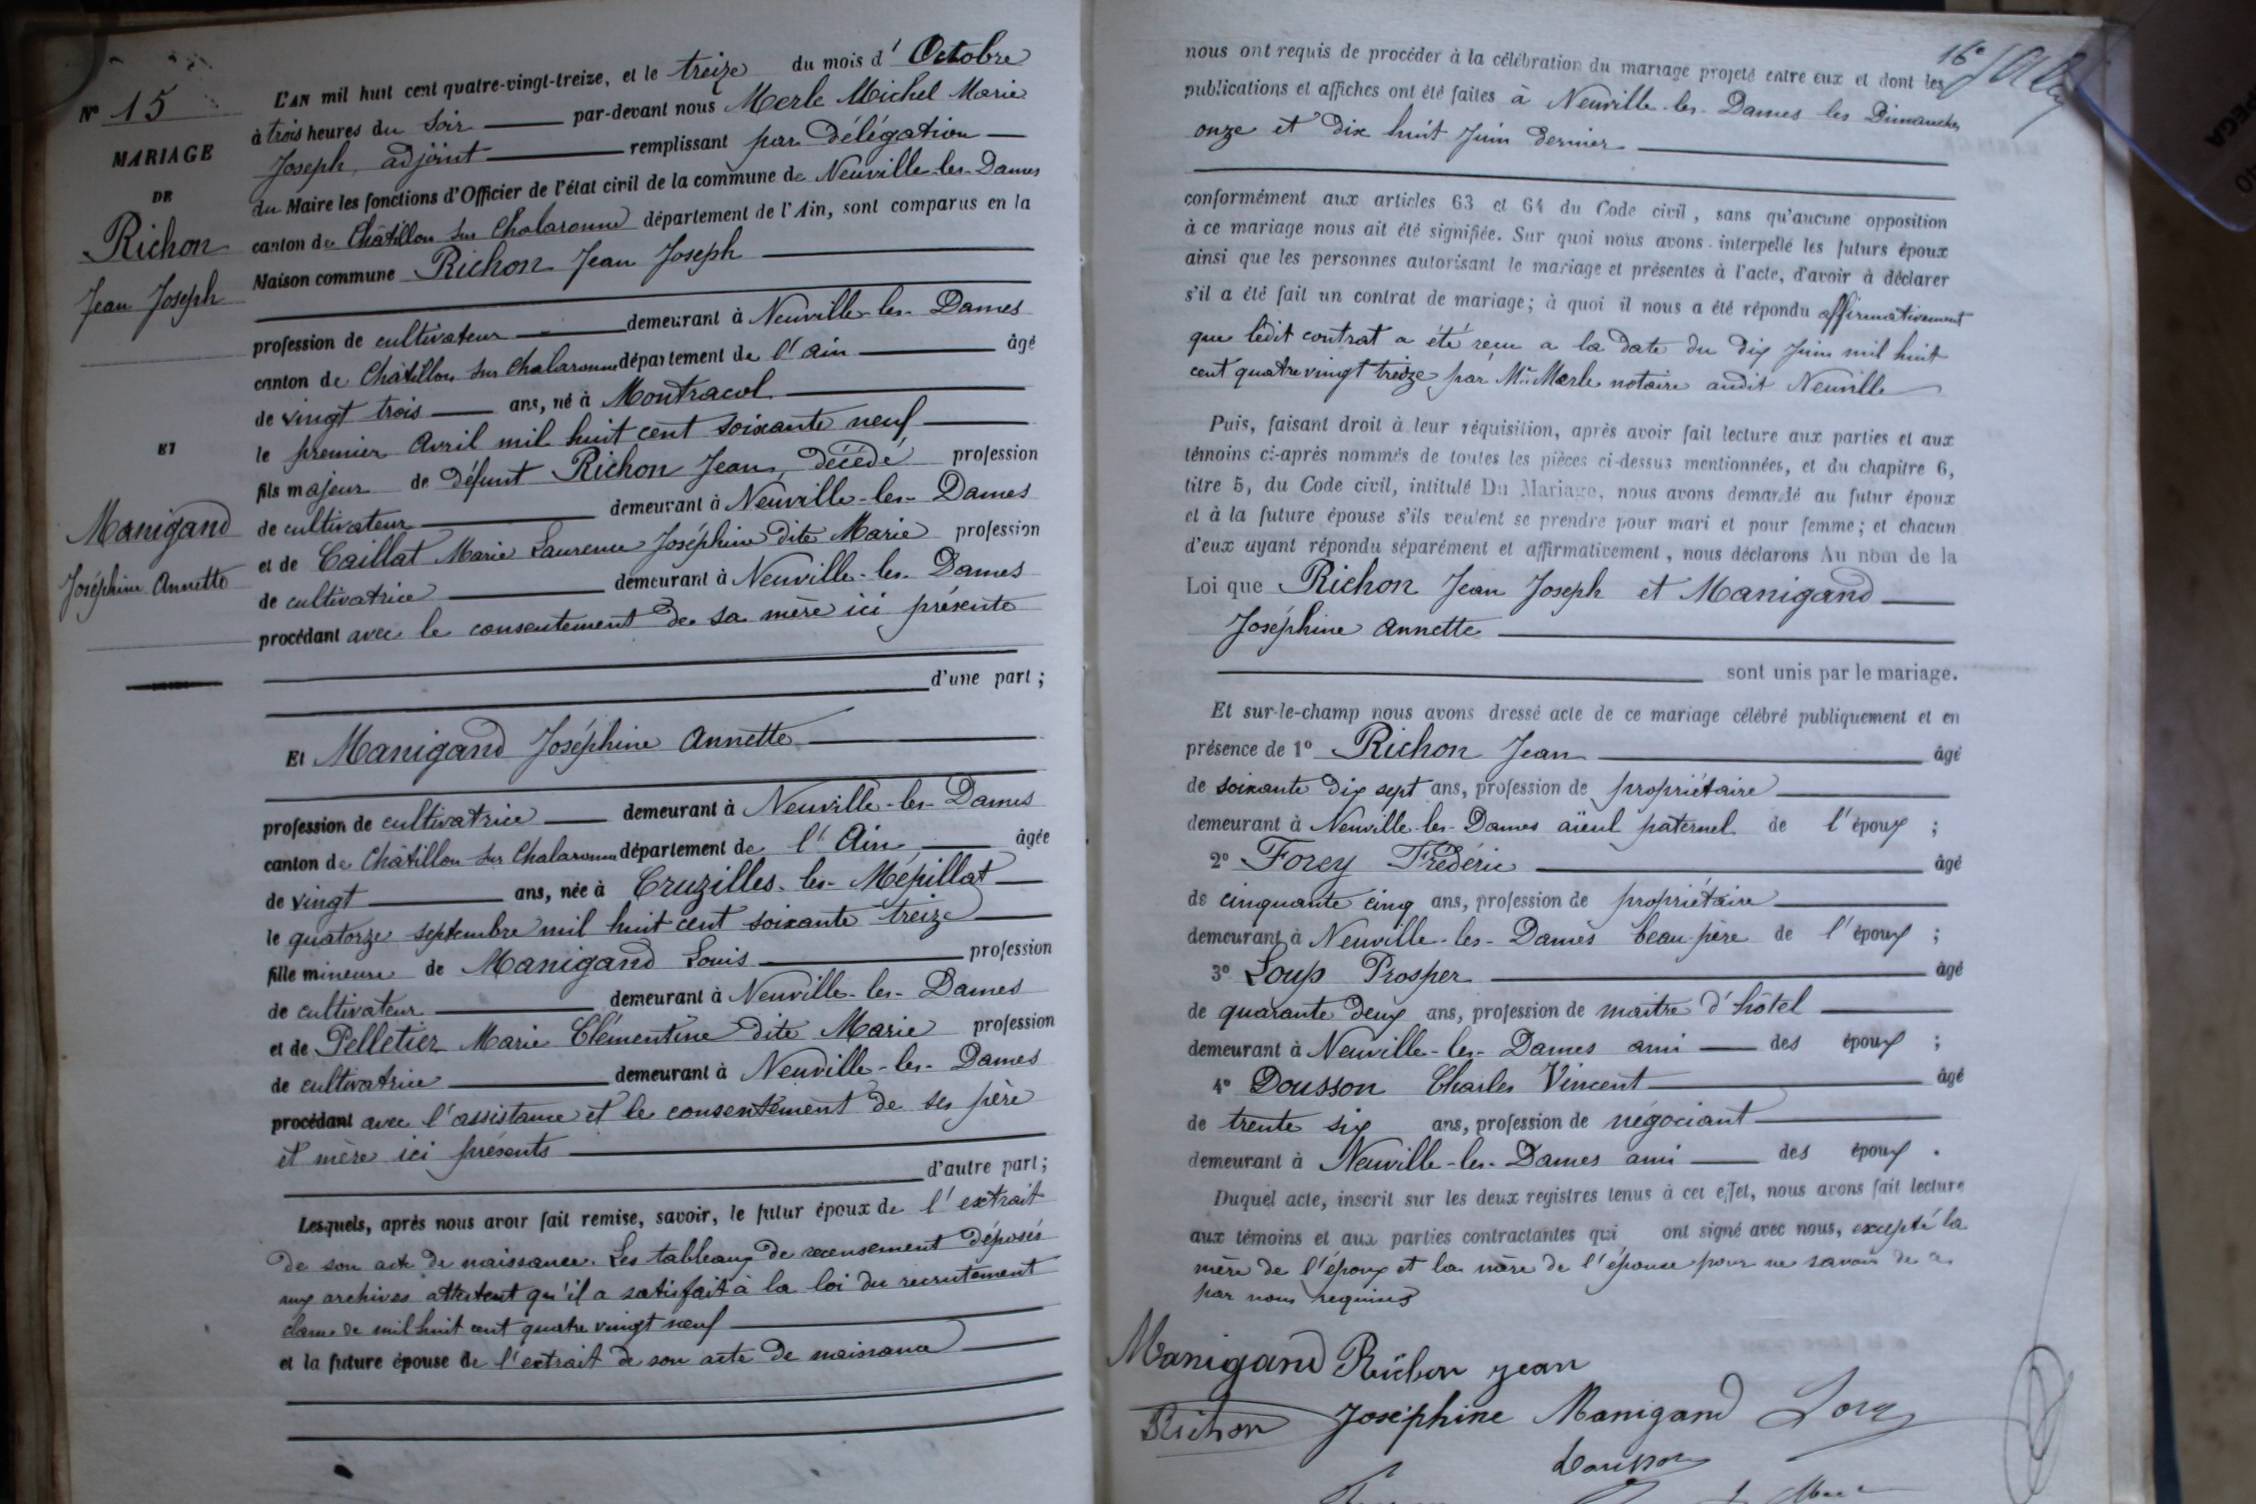 N° 15
MARIAGE
DE
Richon
Jean Joseph
ET
Manigand
Joséphine Annette
L'AN mil huit cent quatre-vingt-treize, et le treize du mois d'Octobre
à trois heures du Soir par-devant nous Merle Michel Marie
Joseph, adjoint remplissant par délégation
du Maire les fonctions d'Officier de l'état civil de la commune de Neuville-les-Dames
canton de Châtillon sur Chalaronne département de l'Ain, sont comparus en la
Maison commune Richon Jean Joseph
profession de cultivateur demeurant à Neuville-les-Dames
canton de Châtillon sur Chalaronne département de l'Ain âgé
de vingt trois ans, né à Montracol
le premier Avril mil huit cent soixante neuf
fils majeur de défunt Richon Jean, décédé profession
de cultivateur demeurant à Neuville-les-Dames
et de Caillat Marie Laurence Joséphine dite Marie profession
de cultivatrice demeurant à Neuville-les-Dames
procédant avec le consentement de sa mère ici présente
d'une part;
Et Manigand Joséphine Annette
profession de cultivatrice demeurant à Neuville-les-Dames
canton de Châtillon sur Chalaronne département de l'Ain âgée
de vingt ans, née à Cruzilles-les-Mépillat
le quatorze septembre mil huit cent soixante treize
fille mineure de Manigand Louis profession
de cultivateur demeurant à Neuville-les-Dames
et de Pelletier Marie Clémentine dite Marie profession
de cultivatrice demeurant à Neuville-les-Dames
procédant avec l'assistance et le consentement de ses père
et mère ici présents
d'autre part;
Lesquels, après nous avoir fait remise, savoir, le futur époux de l'extrait
de son acte de naissance. Les tableaux de recensement déposés
aux archives attestent qu'il a satisfait à la loi du recrutement
classe de mil huit cent quatre vingt neuf
et la future épouse de l'extrait de son acte de naissance
16e
nous ont requis de procéder à la célébration du mariage projeté entre eux et dont les
publications et affiches ont été faites à Neuville-les-Dames les Dimanches
onze et dix huit Juin dernier
conformément aux articles 63 et 64 du Code civil, sans qu'aucune opposition
à ce mariage nous ait été signifiée. Sur quoi nous avons interpellé les futurs époux
ainsi que les personnes autorisant le mariage et présentes à l'acte, d'avoir à déclarer
s'il a été fait un contrat de mariage; à quoi il nous a été répondu affirmativement
que ledit contrat a été reçu a la date du dix Juin mil huit
cent quatre vingt treize par Me Merle notaire audit Neuville
Puis, faisant droit à leur réquisition, après avoir fait lecture aux parties et aux
témoins ci-après nommés de toutes les pièces ci-dessus mentionnées, et du chapitre 6,
titre 5, du Code civil, intitulé Du Mariage, nous avons demandé au futur époux
et à la future épouse s'ils veulent se prendre pour mari et pour femme; et chacun
d'eux ayant répondu séparément et affirmativement, nous déclarons Au nom de la
Loi que Richon Jean Joseph et Manigand
Joséphine Annette
sont unis par le mariage.
Et sur-le-champ nous avons dressé acte de ce mariage célébré publiquement et en
présence de 1° Richon Jean âgé
de soixante dix sept ans, profession de propriétaire
demeurant à Neuville-les-Dames aïeul paternel de l'époux;
2° Forey Frédéric âgé
de cinquante cinq ans, profession de propriétaire
demeurant à Neuville-les-Dames beau-père de l'époux;
3° Loup Prosper âgé
de quarante deux ans, profession de maître d'hôtel
demeurant à Neuville-les-Dames ami des époux;
4° Dousson Charles Vincent âgé
de trente six ans, profession de négociant
demeurant à Neuville-les-Dames ami des époux.
Duquel acte, inscrit sur les deux registres tenus à cet effet, nous avons fait lecture
aux témoins et aux parties contractantes qui ont signé avec nous, excepté la
mère de l'époux et la mère de l'épouse pour ne savoir de ce
par nous requises
Manigand Richon Jean
Richon Joséphine Manigand Forey
Dousson